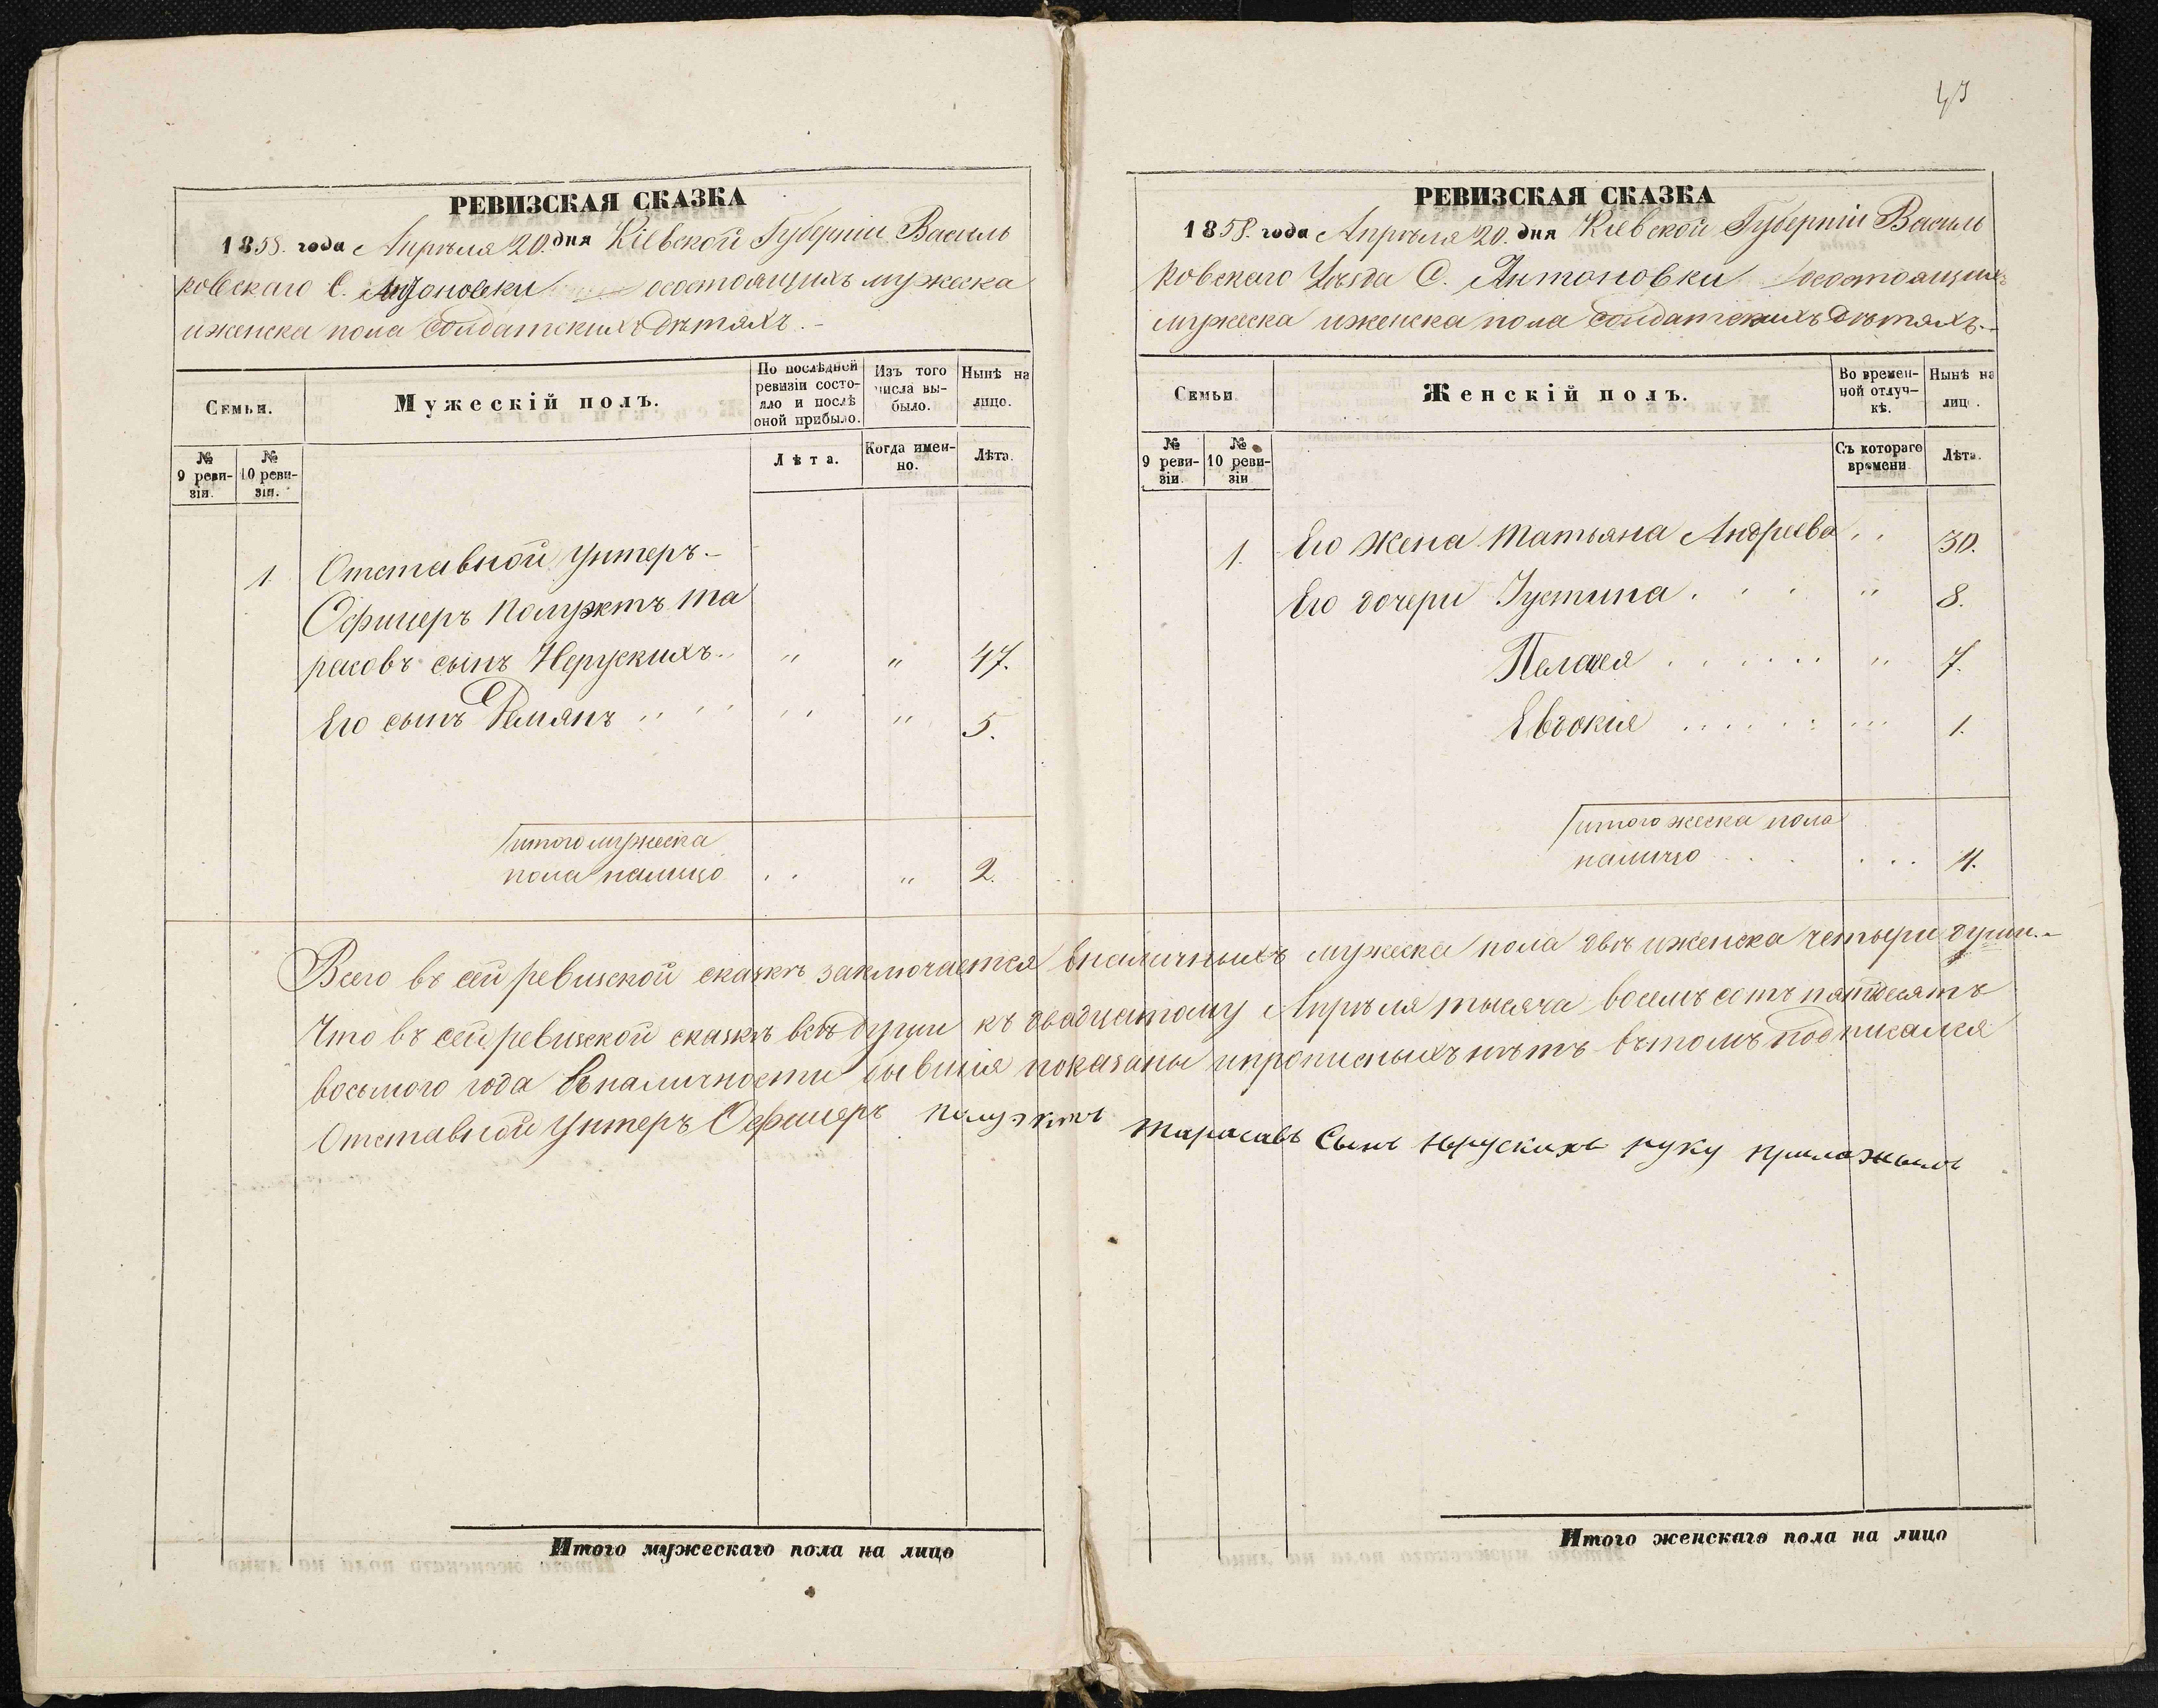 43
РЕВИЗСКАЯ СКАЗКА
1858. года Апрѣля 20. дня Кіевской Губерніи Василь
ковскаго С. Антоновки состоящихъ мужеска
иженска пола солдатскихъ дѣтяхъ.-
Семьи.
Мужескій полъ.
По послѣдней ревизіи состояло и послѣ оной прибыло.
Изъ того числа выбыло.
Нынѣ на лицо.
№ 9 ревизіи.
№ 10 ревизіи.
Лѣта.
Когда именно.
Лѣта.
1 Отставной Унтеръ-
Офицеръ Полуэктъ Та
расовъ сынъ Нерускихъ " " 47.
Его сынъ Демянъ " " 5.
итого мужеска
пола налицо " 2.
РЕВИЗСКАЯ СКАЗКА
1858. года Апрѣля 20. дня Кіевской Губерніи Василь
ковскаго Уѣзда С. Антоновки состоящихъ
мужеска иженска пола солдатскихъ дѣтяхъ.-
Семьи
Женскій полъ.
Во временной отлучкѣ.
Нынѣ на лицо.
№ 9 ревизіи.
№ 10 ревизіи
Съ котораго времени
Лѣта.
1. Его жена Татьяна Андреева " 30.
Его дочери Іустина " 8.
Пелагея " 7.
Евдокия 1.
итого жеска пола
налицо 4.
Всего въ сей ревизской сказкѣ заключается вналичныхъ мужеска пола двѣ иженска четыри души.-
Что въ сей ревизской сказкѣ всѣ души къ двадцатому Апрѣля тысяча восемъ сотъ пятдесятъ
восьмого года въналичности бывшія показаны ипрописныхъ нѣтъ вътомъ подписался
Отставной Унтеръ Офицеръ Полуэктъ Тарасавъ Сынъ Нерускихъ руку приложылъ
Итого мужескаго пола на лицо
Итого женскаго пола на лицо